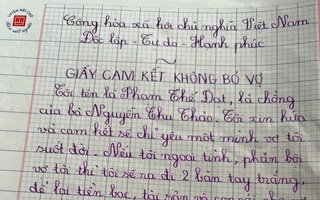 Cộng hòa xã hội chủ nghĩa Việt Nam
Độc lập - Tự do - Hạnh phúc
GIẤY CAM KẾT KHÔNG BỎ VỢ
Tôi tên là Phạm Thế Đạt, là chồng
của bà Nguyễn Thu Thảo. Tôi xin hứa
và cam kết sẽ chỉ yêu một mình vợ tôi
suốt đời. Nếu tôi ngoại tình, phản bội
vợ tôi thì tôi sẽ ra đi 2 bàn tay trắng,
để lại tiền bạc, tài sản và con cái cho vợ